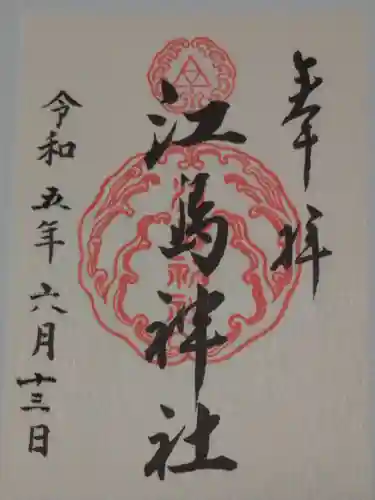 奉拝
江島神社
令和五年六月十三日